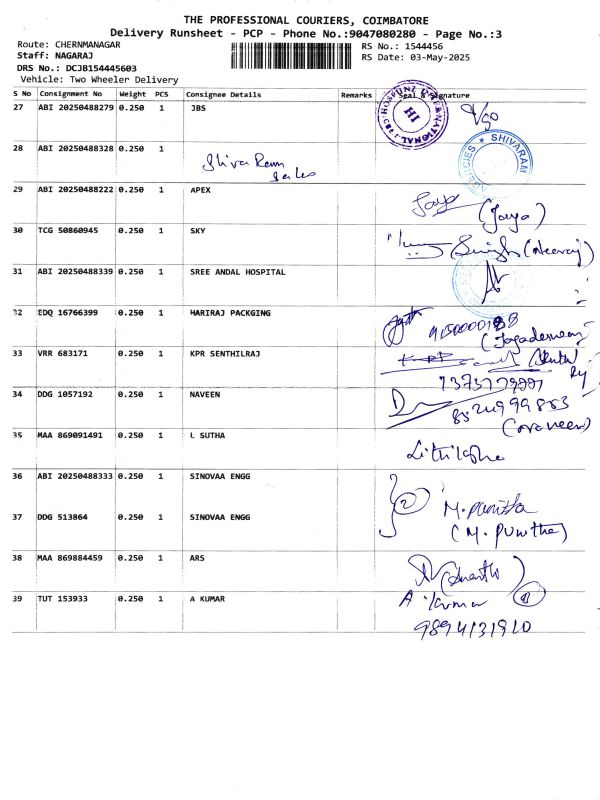 THE PROFESSIONAL COURIERS, COIMBATORE
Delivery Runsheet - PCP - Phone No.:9047080280 - Page No.:3
Route: CHERNMANAGAR
RS No.: 1544456
Staff: NAGARAJ
RS Date: 03-May-2025
DRS No.: DCJB154445603
Vehicle: Two Wheeler Delivery
S No Consignment No Weight PCS Consignee Details Remarks Seal & Signature
27 ABI 20250488279 0.250 1 JBS
28 ABI 20250488328 0.250 1
Shiva Ram
Sales
SHIVARAM AGENCIES
29 ABI 20250488222 0.250 1 APEX
(Jaya)
30 TCG 50860945 0.250 1 SKY
Singh (Neeraj)
31 ABI 20250488339 0.250 1 SREE ANDAL HOSPITAL
32 EDQ 16766399 0.250 1 HARIRAJ PACKGING
33 VRR 683171 0.250 1 KPR SENTHILRAJ
34 DDG 1057192 0.250 1 NAVEEN
35 MAA 869091491 0.250 1 L SUTHA
36 ABI 20250488333 0.250 1 SINOVAA ENGG
2
M. Punitha
37 DDG 513864 0.250 1 SINOVAA ENGG
38 MAA 869884459 0.250 1 ARS
39 TUT 153933 0.250 1 A KUMAR
A. Kumar
9894131920